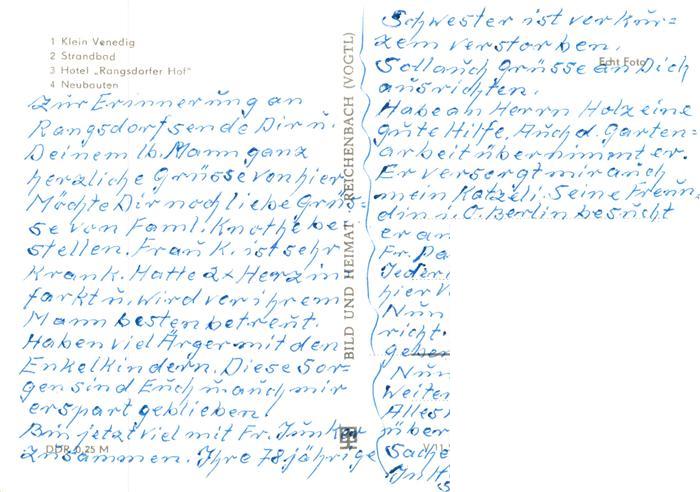 1 Klein Venedig
2 Strandbad
3 Hotel „Rangsdorfer Hof"
4 Neubauten
Zur Erinnerung an
Rangsdorf sende Dir u.
Deinem lb. Mann ganz
herzliche Grüsse von hier
Möchte Dir noch liebe Grüs=
se von Faml. Knothe be
stellen. Frau K. ist sehr
krank. Hatte 2x Herzin
farkt u. wird von ihrem
Mann bestens betreut.
Haben viel Ärger mit den
Enkelkindern. Diese Sor-
gen sind Euch u. auch mir
erspart geblieben!
Bin jetzt viel mit Fr. Junker
zusammen. Ihre 78 jährige
DDR 0,25 M
BILD UND HEIMAT REICHENBACH (VOGTL)
Schwester ist vor kur=
zem verstorben.
Soll auch Grüsse an Dich
ausrichten.
Echt Foto
Habe an Herrn Holz eine
gute Hilfe. Auch d. Garten=
arbeit übernimmt er.
Er versorgt mir auch
mein Katzeli. Seine Freun
din i. O. Berlin besucht
er an
Fr. Pa
Jeder
hier
Nun
richt.
geben
Nun
Weiter
Alles
über
Sache
V 11